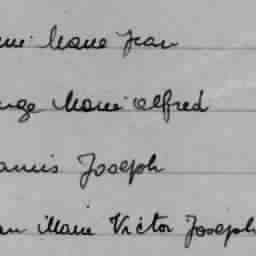 Marie Jean
Marie Alfred
Joseph
Marie Victor Joseph